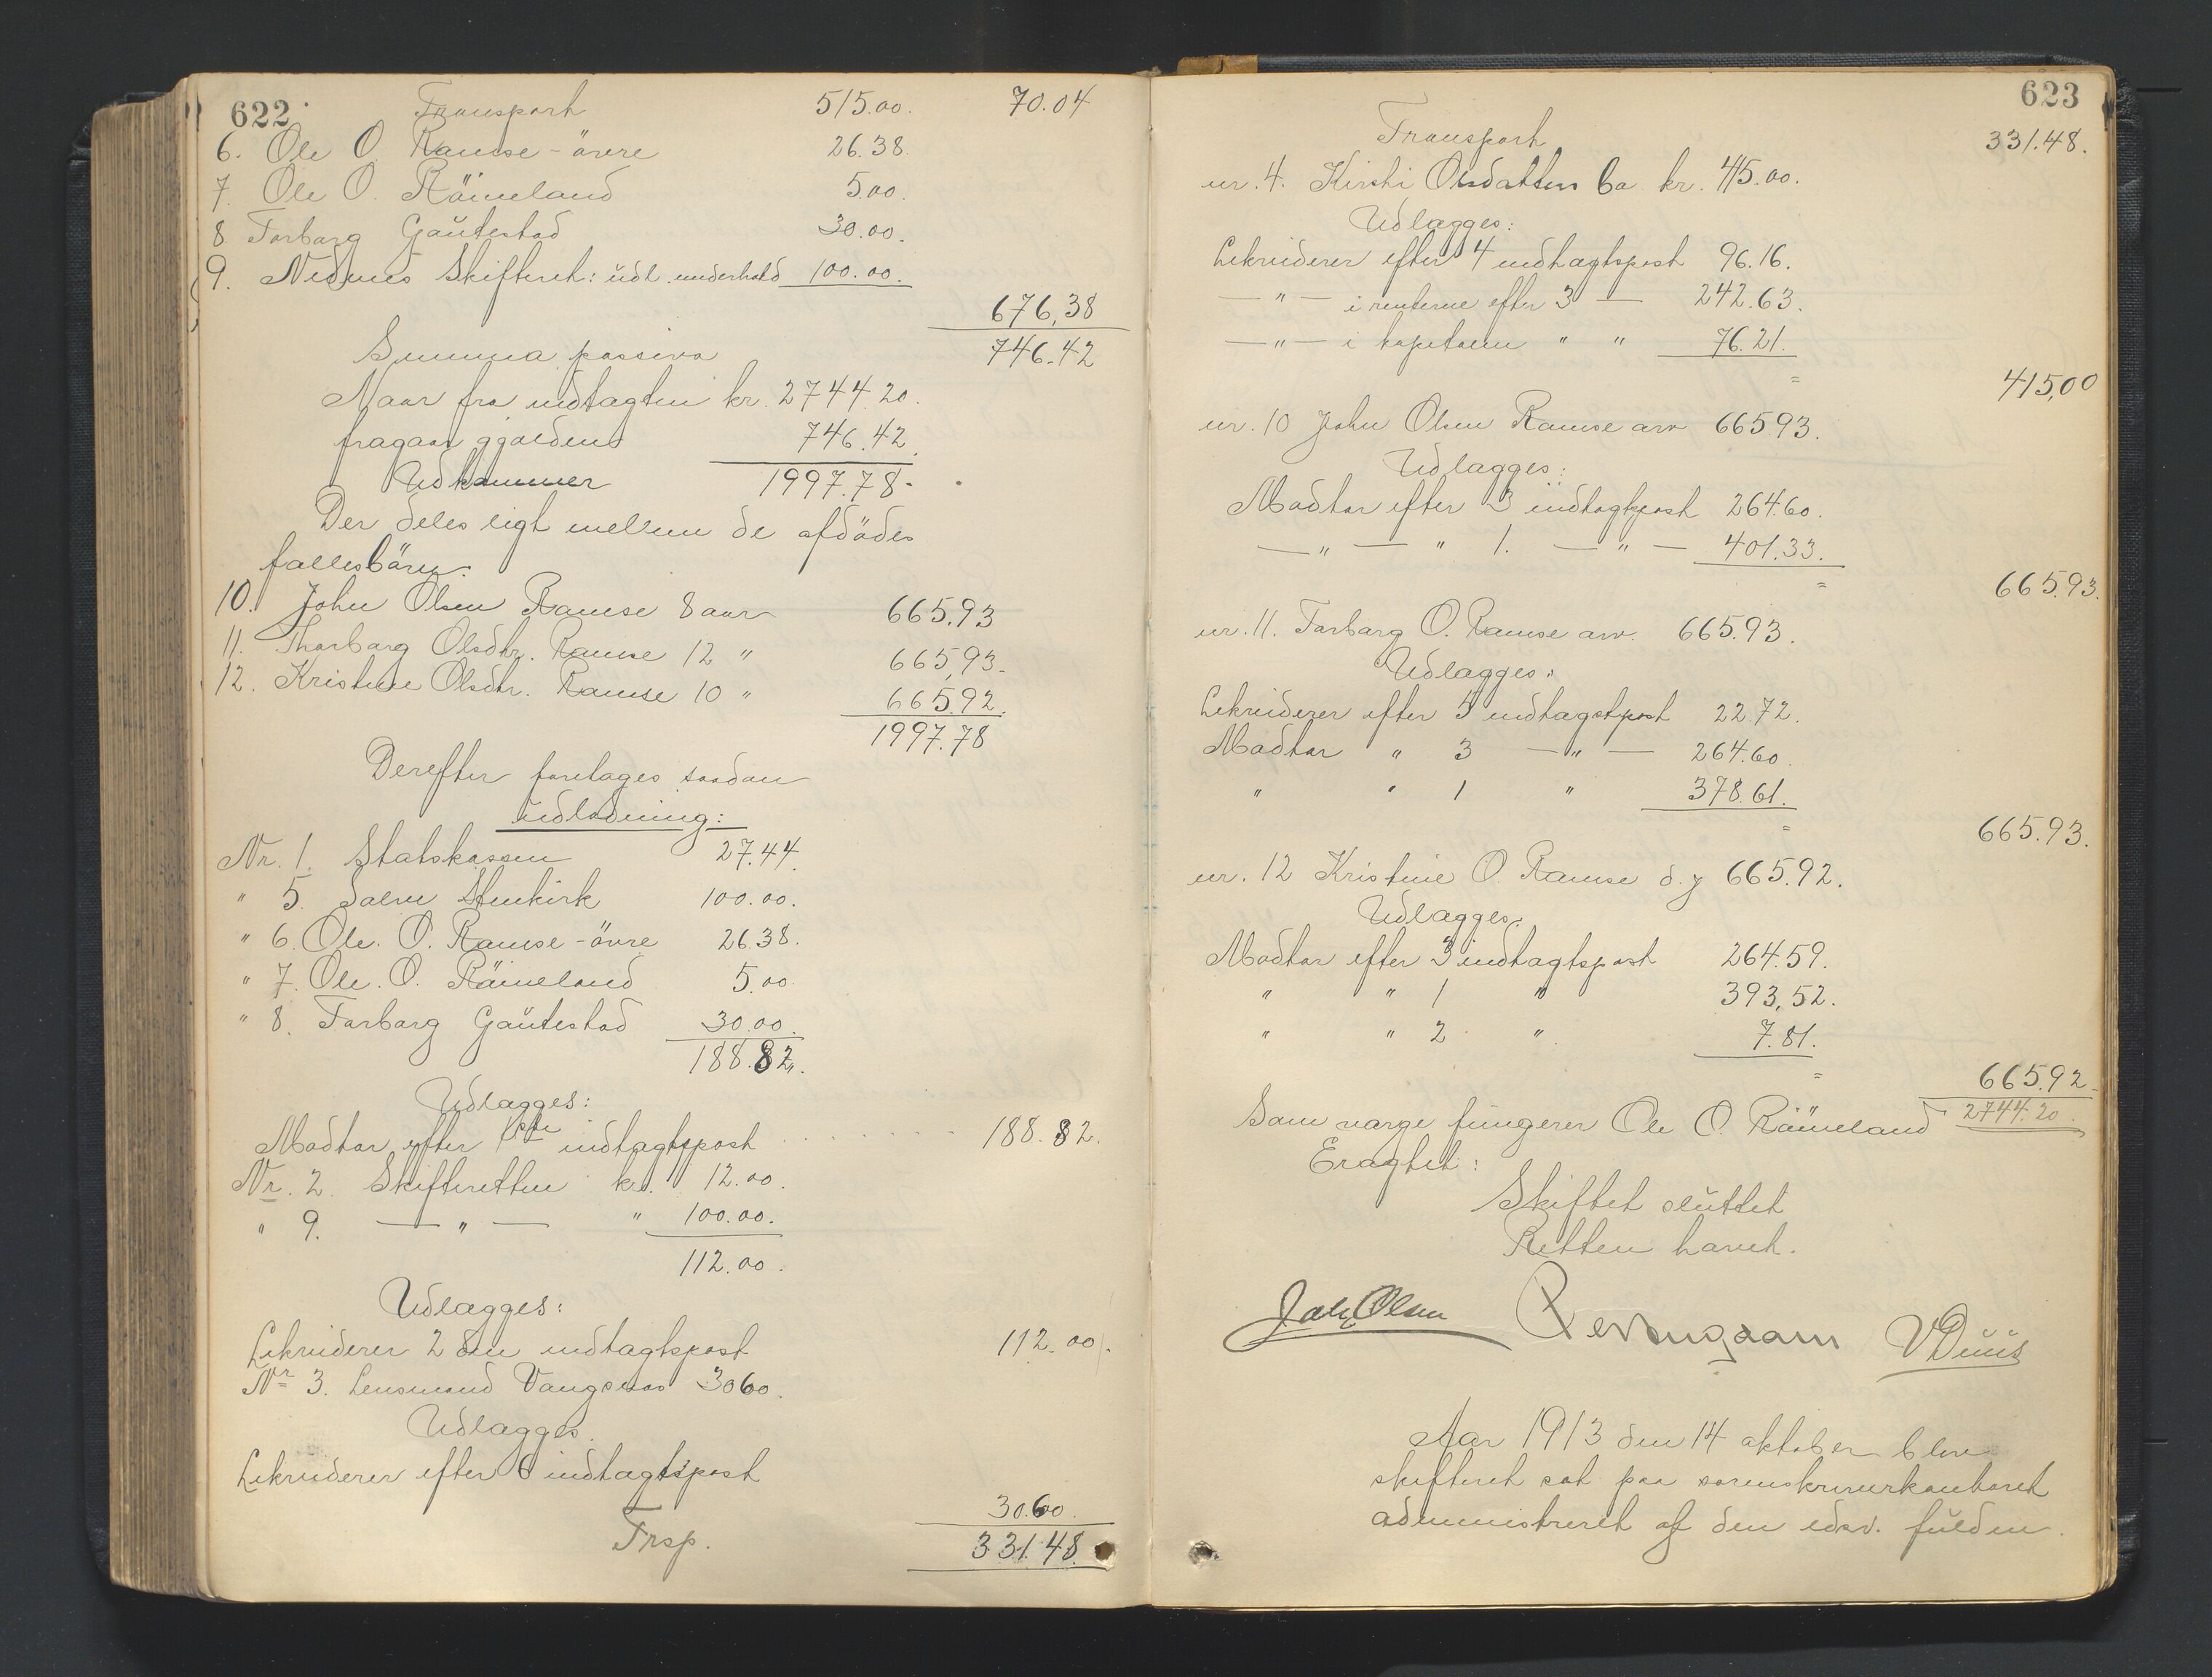 622 Transport 515.00. 70.04
6. Ole O. Ramse-övre 26.38.
7. Ole O. Räimeland 5.00.
8. Torborg Gaŭtestad 30.00.
9. Nedenes Skifteret: ŭdl. underhold 100.00.
676,38
Summa passiva 746.42
Naar fra indtagten kr. 2744.20.
fragaar gjælden 746.42.
Udkommer 1997.78.
Der deles ligt mellem de afdödes
fællesbörn:
10. John Olsen Ramse 8 aar 665.93
11. Thorborg Olsdtr. Ramse 12 " 665,93.
12. Kristine Olsdtr. Ramse 10 " 665.92.
1997.78
Derefter foretages saadan
ŭdlodning:
Nr. 1. Statskassen 27.44.
" 5. Salve Stenkirk 100.00.
" 6. Ole. O. Ramse-övre 26.38.
" 7. Ole. O. Räimeland 5.00
" 8. Torborg Gaŭtestad 30.00.
188.82.
Udlægges:
Modtar efter 1ste indtagtspost 188.82.
Nr. 2. Skifteretten kr. 12.00.
" 9. — " — " 100.00.
112.00.
Udlægges:
Likviderer 2den indtagtspost 112.00.
Nr 3. Lensmand Vangsnes 30.60.
Udlægges.
Likviderer efter 6 indtagtspost
30.60.
Trsp. 331.48.
623
Transport 331.48.
nr. 4. Kirsti Olsdatters bo kr. 415.00.
Udlægges:
Likviderer efter 4 indtagtspost 96.16.
— " — i renterne efter 3 — 242.63.
— " — i kapitalen " " 76.21.
= 415,00
nr. 10 John Olsen Ramse arv 665.93.
Udlægges:
Modtar efter 3 indtagtspost 264.60.
— " — " 1. — " — 401.33.
= 665.93.
nr. 11. Torborg O. Ramse arv. 665.93.
Udlægges:
Likviderer efter 5 indtagtspost 22.72.
Modtar " 3 — " — 264.60.
" " 1 " 378.61.
= 665.93.
nr. 12 Kristine O. Ramse d.y 665.92.
Udlægges.
Modtar efter 3 indtagtspost 264.59.
" " 1 " 393,52.
" " 2 " 7.81.
= 665.92.
Som værge fŭngerer Ole O. Räimeland 2744.20.
Eragtet:
Skiftet slŭttet
Retten hævet.
Olsen
Aar 1913 den 14 oktober blev
skifteret sat paa sorenskriverkontoret
administreret af den edsv. fŭldm.